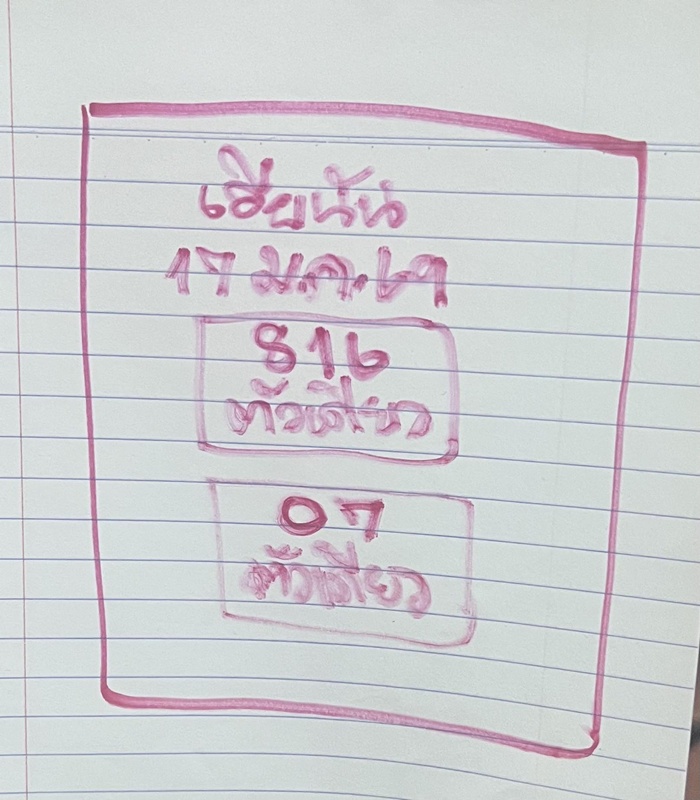 เฮียนัน
17 ม.ค. 69
816
ตัวเดียว
07
ตัวเดียว